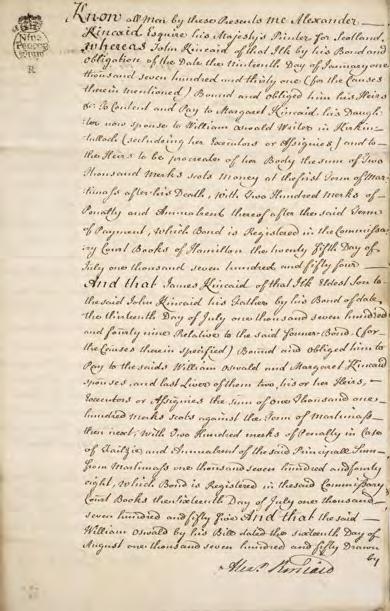 Nine
Pence
R
Know all Men by these Presents me Alexander
Kincaid Esquire his Majesty's Printer for Scotland,
whereas John Kincaid of that Ilk by his Bond and
obligation of the Date the Ninteenth Day of January one
thousand seven hundred and thirty one (for the Causes
therein mentioned) Bound and obliged him his Heirs
&c To Content and Pay to Margaret Kincaid his Daugh-
ter now spouse to William Oswald Writer in Kirkin-
tulloch (secluding her Executors or Assignies) and to
the Heirs to be procreate of her Body the sum of Two
Thousand Merks scots Money at the first Term of Mar-
timass after his Death, with Two Hundred Merks of
Penalty and Annualrent thereof after the said Term
of Payment, which Bond is Registered in the Commissa-
ry Court Books of Hamilton the twenty fifth Day of
July one thousand seven hundred and fifty four
And that James Kincaid of that Ilk Eldest Son to
the said John Kincaid his Father by his Bond of date
the thirteenth Day of July one thousand seven hundred
and fourty nine Relative to the said former Bond (for
the Causes therein specified) Bound and obliged him to
Pay to the saids William Oswald and Margaret Kincaid
spouses, and last Liver of them two, his or her Heirs,
Executors or Assignies the sum of One Thousand one
hundred Merks scots against the Term of Martimass
then next, with Two Hundred merks of Penalty in Case
of Failzie and Annualrent of the said Principall Sum
from Martimass one thousand seven hundred and fourty
eight, which Bond is Registered in the said Commissary
Court Books the sixteenth Day of July one thousand
seven hundred and fifty five And that the said
William Oswald by his Bill dated the sixteenth Day of
August one thousand seven hundred and fifty Drawn
by
Alexr. Kincaid